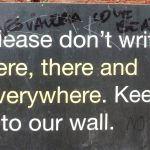 VALERIA LOVE
lease don't writ
ere, there and
verywhere. Kee
to our wall.
NO